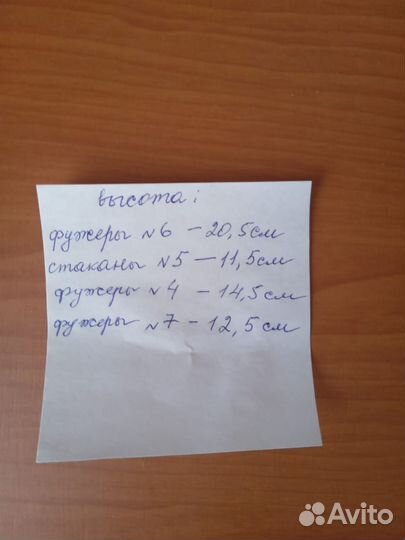 высота:
фужеры №6 - 20,5см
стаканы №5 - 11,5см
фужеры №4 - 14,5см
фужеры №7 - 12,5см
Avito